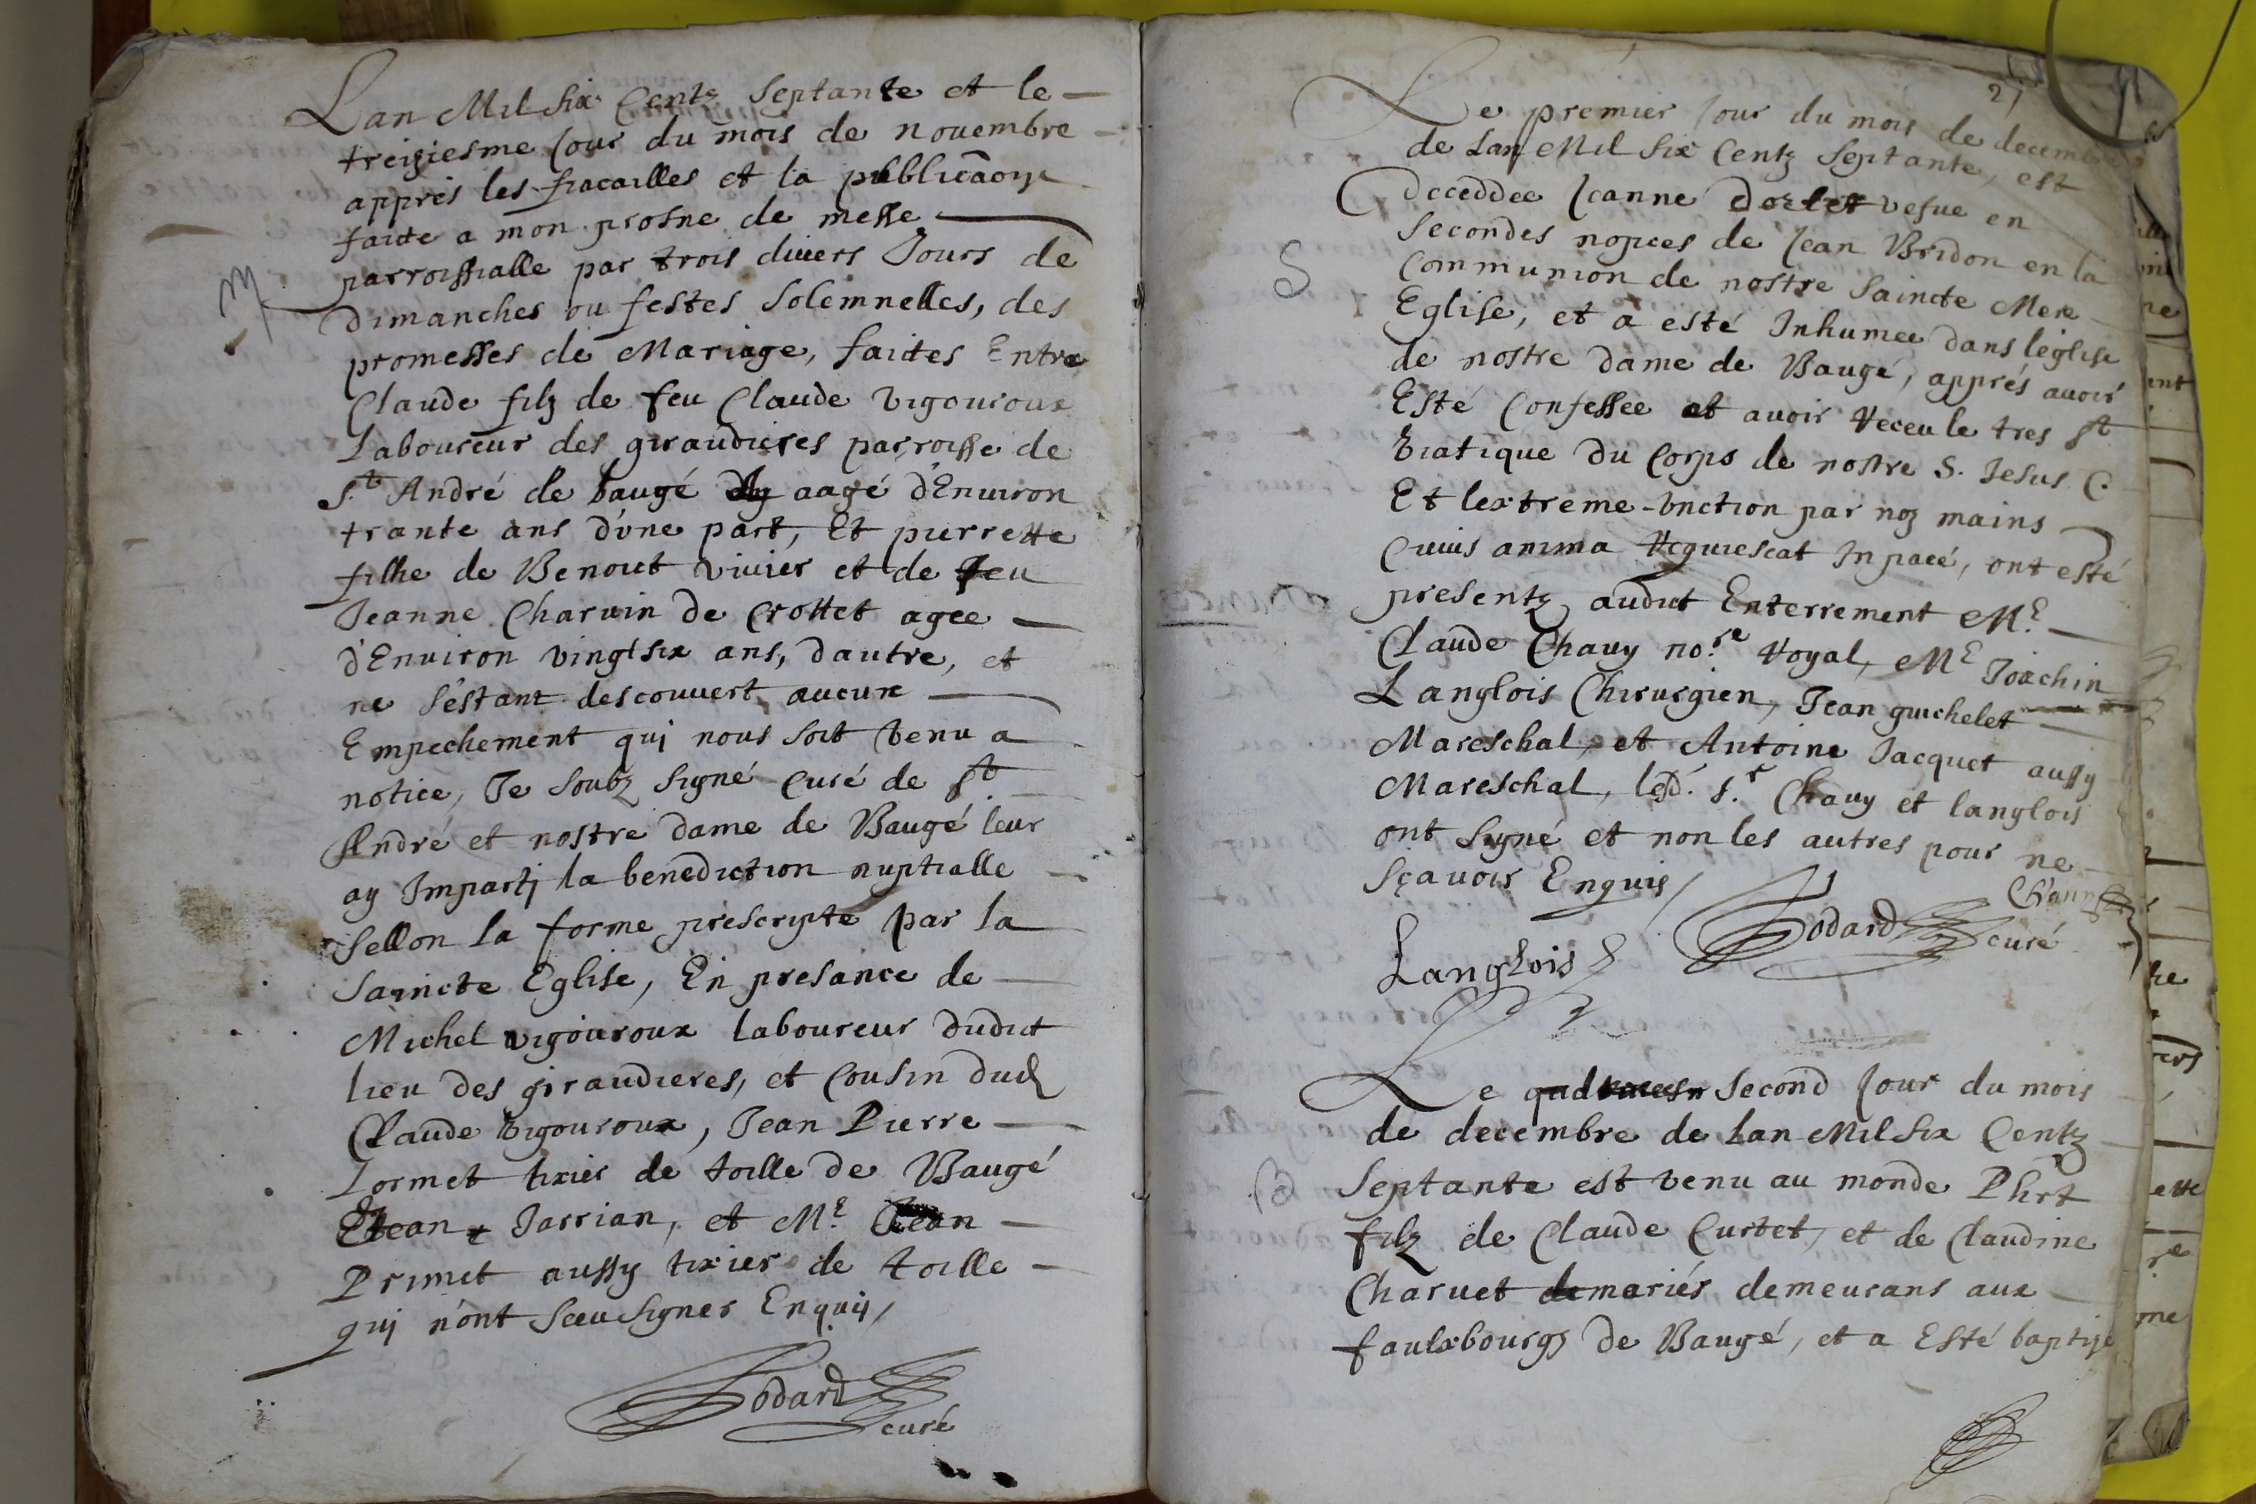 Lan Mil Six Centz Septante et le
treiziesme Jour du mois de novembre
appres les fiacailles et la publicãon
faicte a mon prosne de messe
parroissialle par trois divers Jours de
M
dimanches ou festes solemnelles, des
promesses de Mariage, faictes Entre
Claude filz de feu Claude Vigouroux
Laboureur des giraudieres parroisse de
S.t André de baugé aagé d'Environ
trante ans d'une part, Et pierrette
fille de Benoict vivier et de feu
Jeanne Charvin de Crottet agee
d'Environ vingt six ans, dautre, et
ne s'estant descouvert aucun
Empechement qui nous soit venu a
notice, Je soubz signé curé de St
André et nostre dame de Baugé leur
ay Imparti la benediction nuptialle
sellon la forme prescripte par la
saincte Eglise, En presance de
Michel vigouroux laboureur dudict
lieu des giraudieres, et Cousin dud
Claude Vigouroux, Jean Pierre
Lormet tixier de toille de Baugé
Jean Jarrian, et M.e Jean
Primet aussy tixier de toille
qui n'ont sceu signer Enquis,
Godard
curé
21
Le premier Jour du mois de decembre
de Lan Mil Six Centz Septante, est
deceddee Jeanne vefve en
secondes nopces de Jean Bridon en la
S
Communion de nostre saincte Mere
Eglise, et a esté Inhumee dans leglise
de nostre dame de Baugé, apprés avoir
Esté Confessee et avoir receu le tres St
Viatique du Corps de nostre S. Jesus C.
Et lextreme-onction par noz mains
Cuius anima requiescat In pacé, ont esté
presentz audict Enterrement M.e
Claude Chavy no.re royal, M.e Joachin
Langlois Chirurgien, Jean guichelet
Mareschal, et Antoine Jacquet aussy
Mareschal, lesd. S.r Chavy et langlois
ont signé et non les autres pour ne
sçavoir Enquis
Godard
curé
Langlois
Le second Jour du mois
de decembre de Lan Mil Six Centz
B
Septante est venu au monde Phrt
filz de Claude Curtet, et de Claudine
Charvet mariés demeurans aux
faulxbourgs de Baugé, et a Esté baptizé